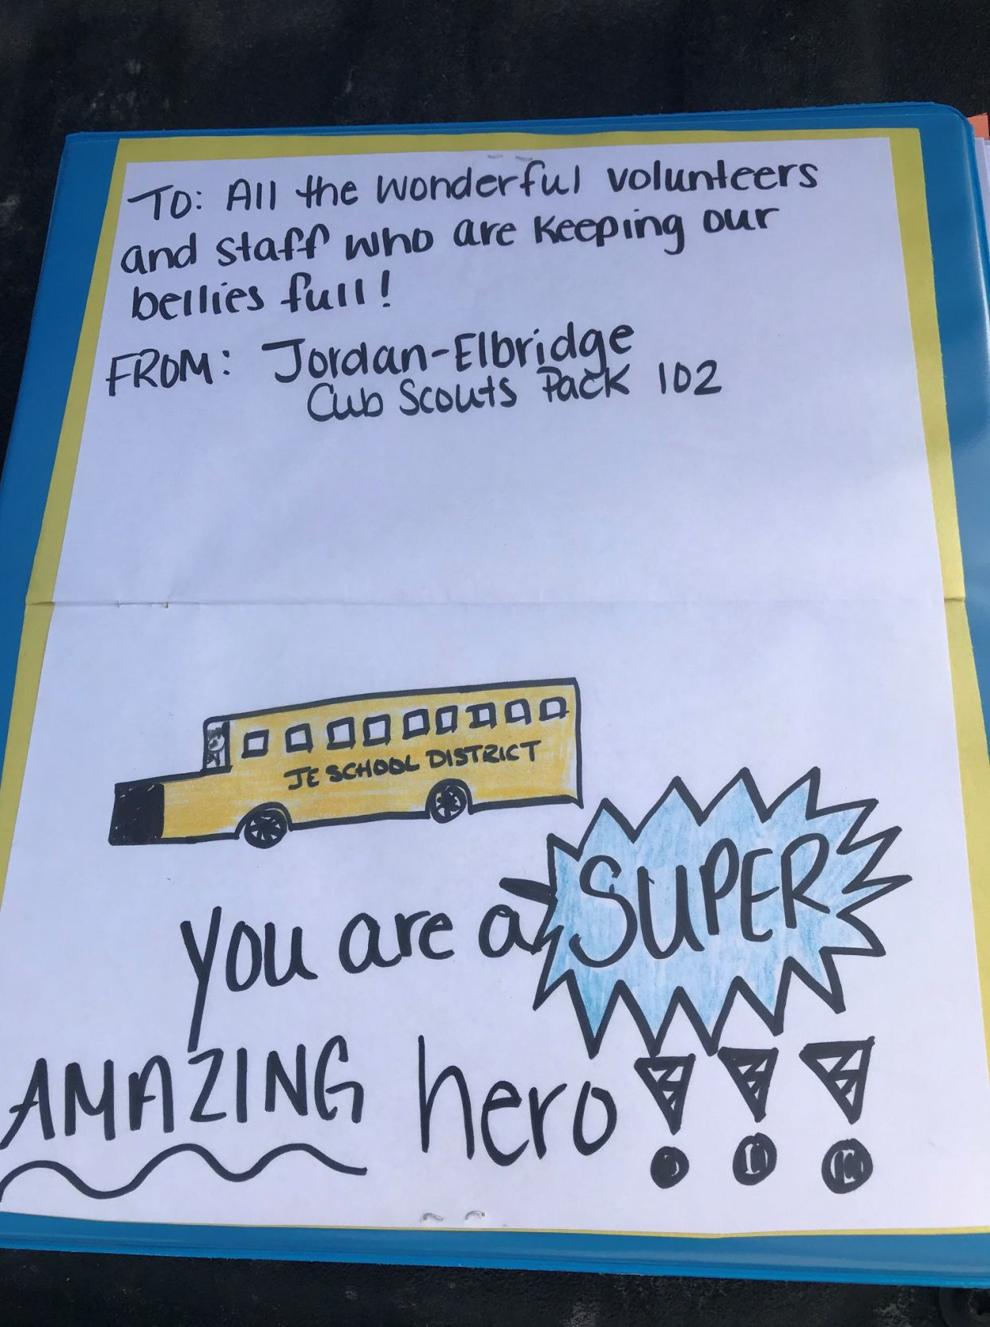 TO: All the wonderful volunteers
and staff who are keeping our
bellies full!
FROM: Jordan-Elbridge
Cub Scouts Pack 102
JE SCHOOL DISTRICT
you are a SUPER
AMAZING hero!!!